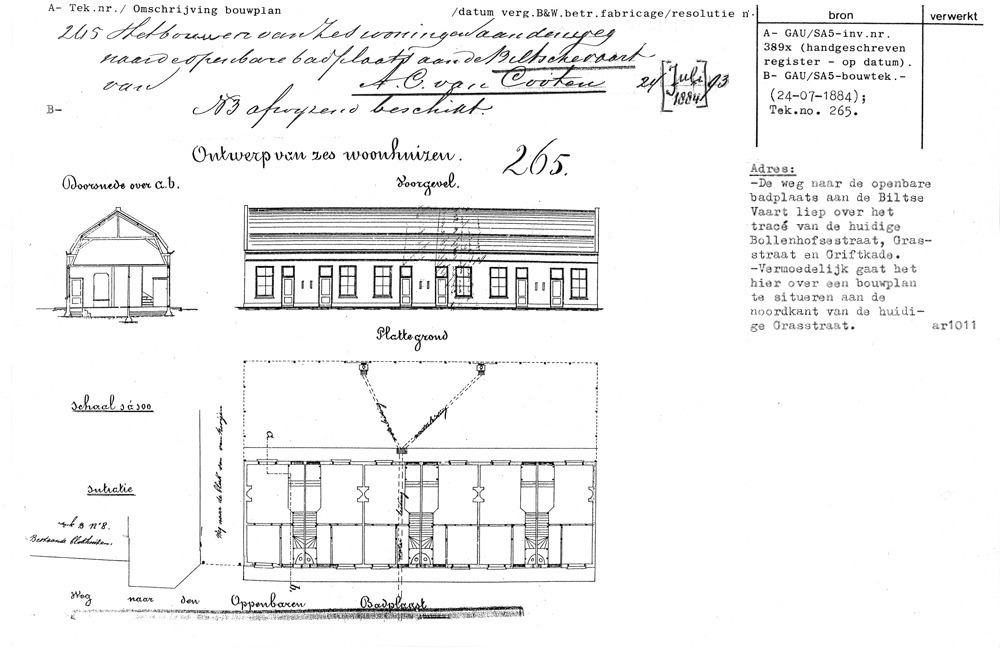 A- Tek.nr./ Omschrijving bouwplan
/datum verg.B&W.betr.fabricage/resolutie n.
bron
verwerkt
265 Het bouwen van Zes woningen aan den weg
naar de openbare badplaats aan de Biltsche vaart
van A.C. van Cooten
24 Juli 1884 / 93
B-
N3 afwyzend beschikt.
A- GAU/SA5-inv.nr.
389x (handgeschreven
register - op datum).
B- GAU/SA5-bouwtek.-
(24-07-1884);
Tek.no. 265.
Ontwerp van zes woonhuizen.
265.
Doorsnede over a.b.
Voorgevel.
Adres:
-De weg naar de openbare
badplaats aan de Biltse
Vaart liep over het
tracé van de huidige
Bollenhofsestraat, Gras-
straat en Griftkade.
-Vermoedelijk gaat het
hier over een bouwplan
te situeren aan de
noordkant van de huidi-
ge Grasstraat.
ar1011
Platte grond
Schaal 1 à 100
a.
Weg naar de
Situatie
B N° 8.
Bestaande
b.
Weg naar den Oppenbaren Badplaast